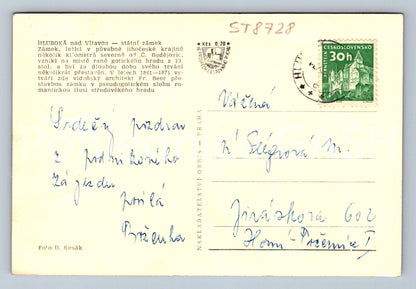 ST8728
HLUBOKÁ nad Vltavou — státní zámek
Zámek, ležící v půvabné jihočeské krajině
několik kilometrů severně od Č. Budějovic,
vznikl na místě raně gotického hradu z 13.
stol. a byl za dlouhou dobu svého trvání
několikrát přestavěn. V letech 1841—1871 vy-
tváří zde vídeňský architekt Fr. Beer pře-
stavbou zámku v pseudogotickém slohu ro-
mantickou ilusi středověkého hradu
Kčs 0,20
ČESKOSLOVENSKO
30h
HLUB
Srdečný pozdrav
z podnikového
zájezdu
posílá
Boženka
Foto D. Kusák
NAKLADATELSTVÍ ORBIS - PRAHA
Vážená
Jiráskova 602
Horní Počernice I